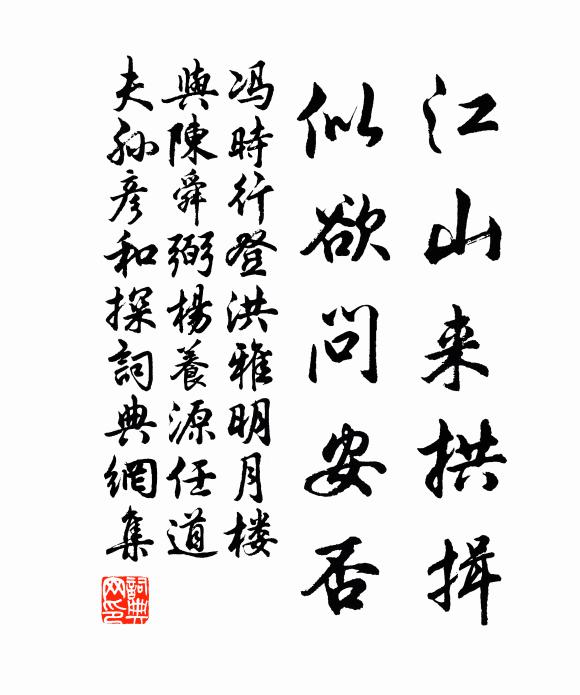 江山来拱揖
似欲问安否
冯時行登洪雅明月楼
與陳舜弼楊養源任道
夫孙彦和探詞典網集
詞典
网印